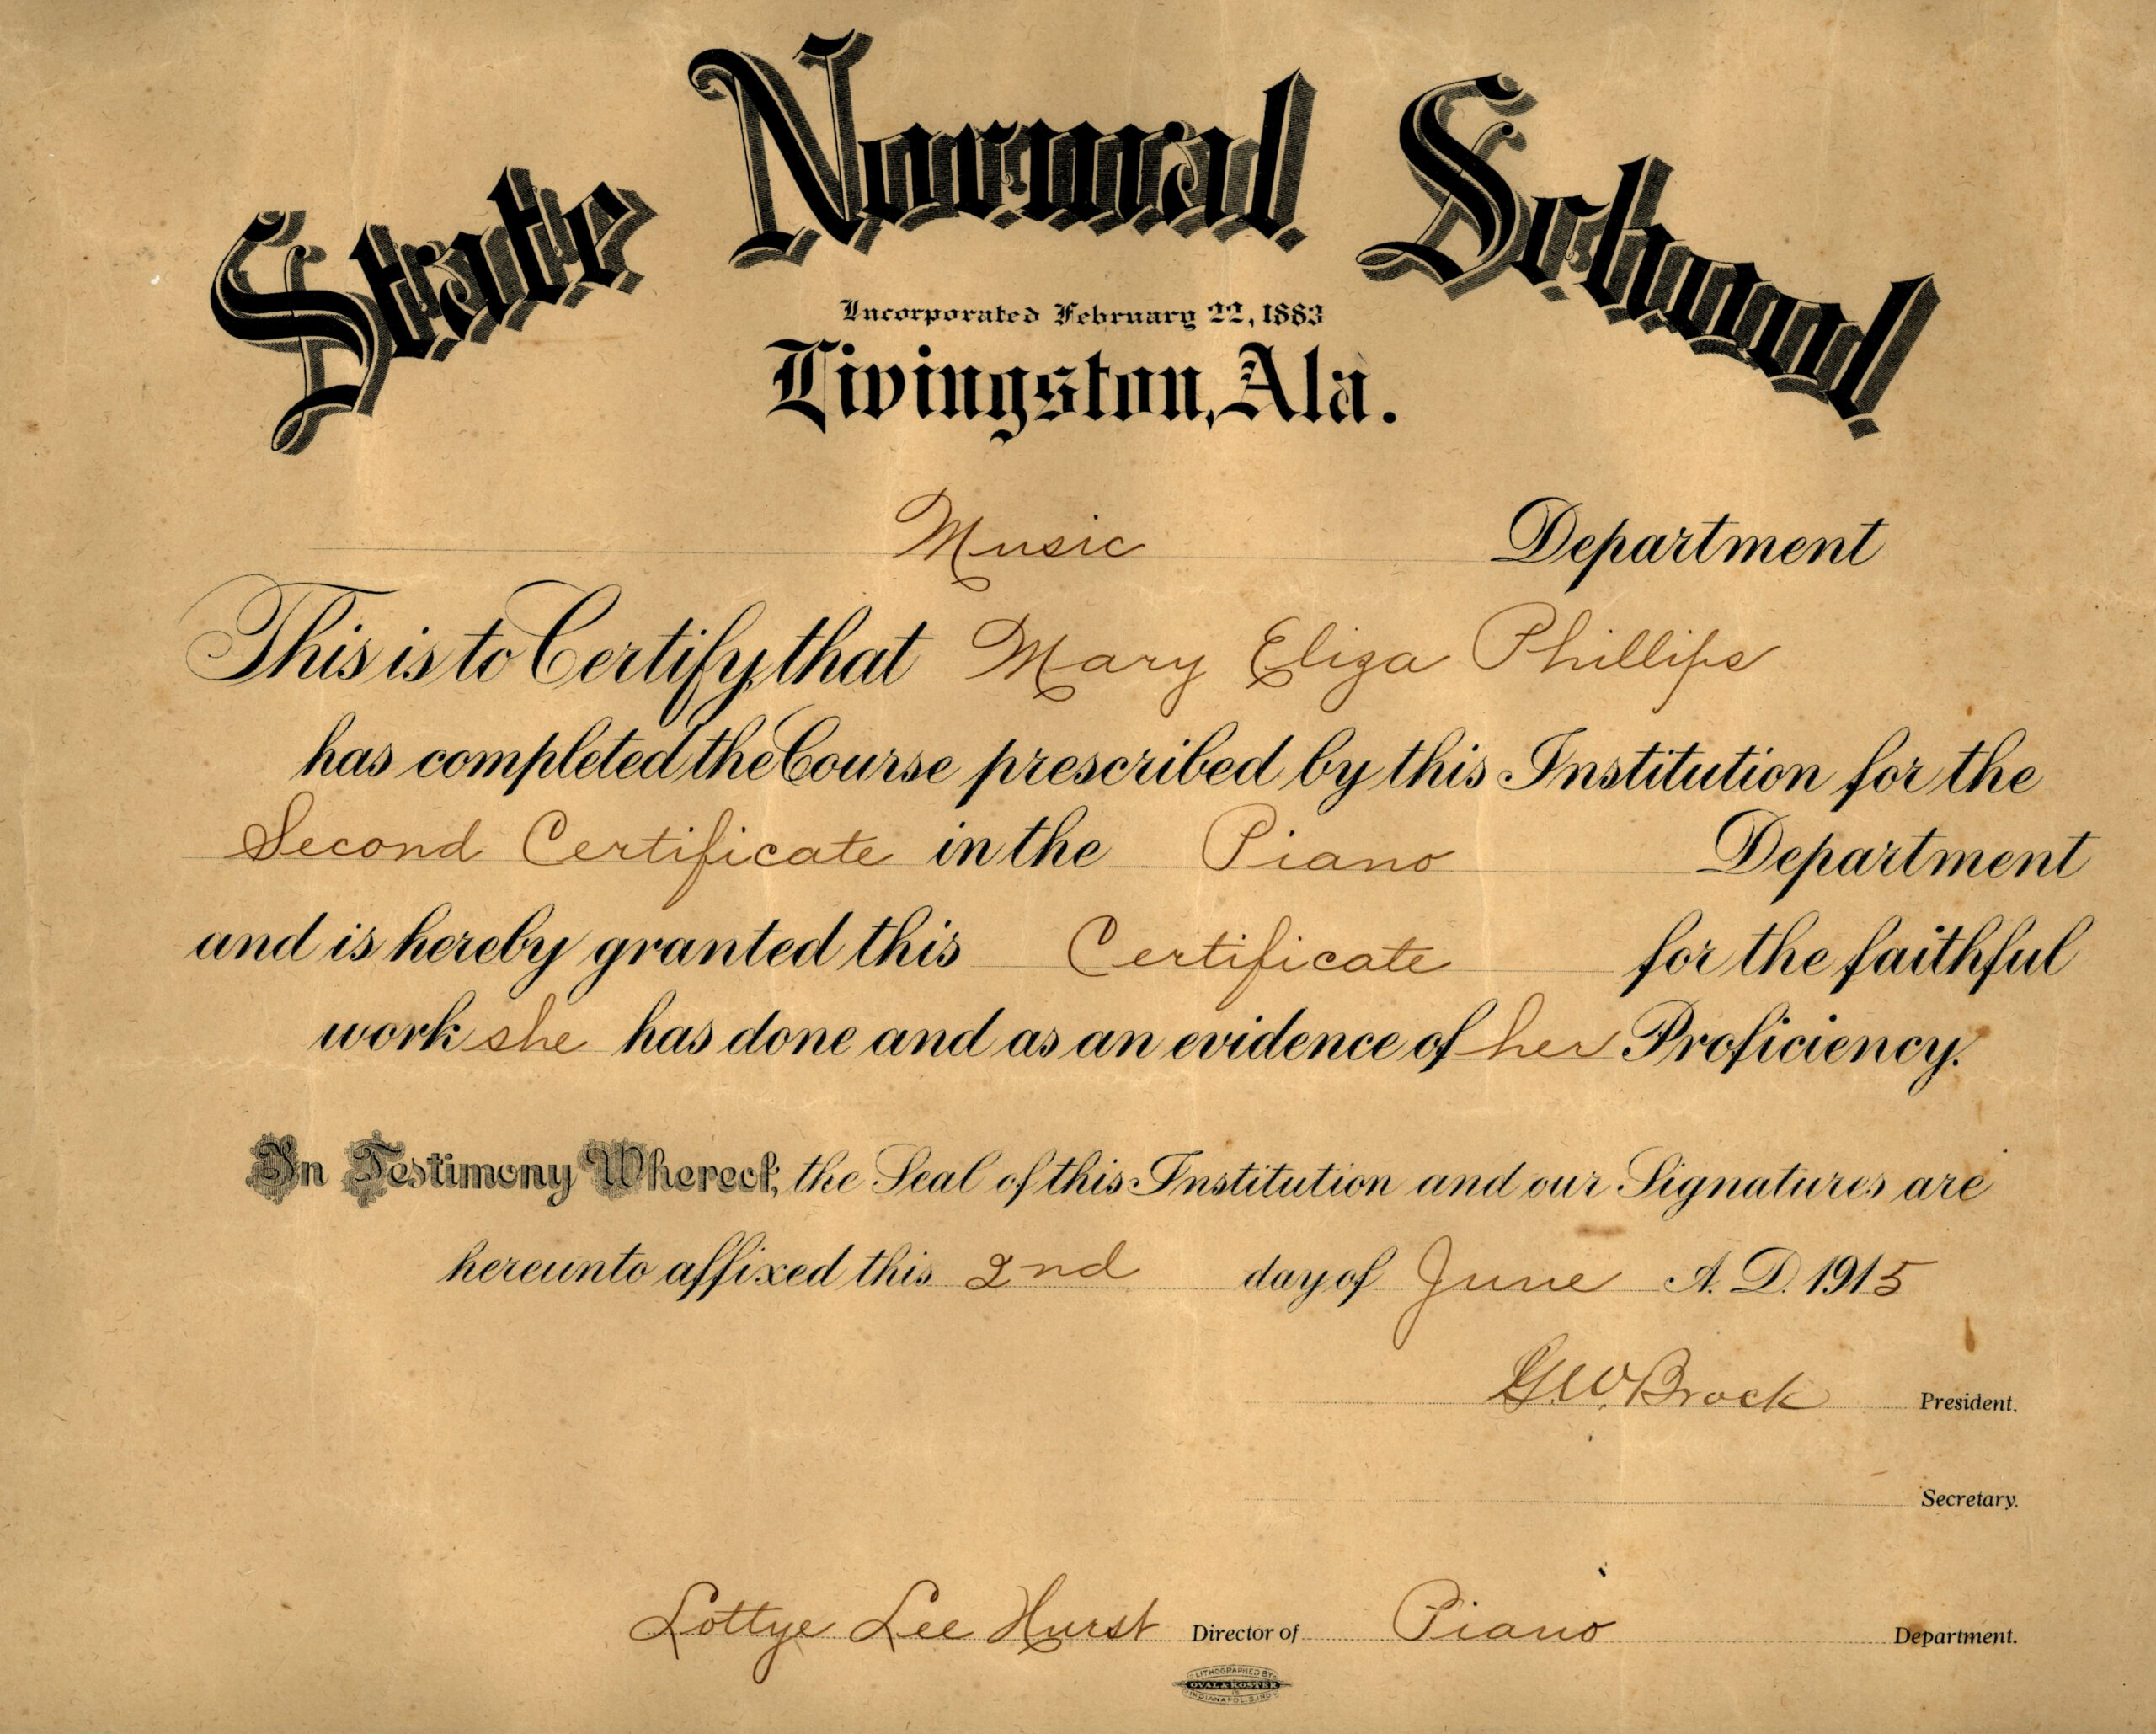 State Normal School
Incorporated February 22, 1883
Livingston, Ala.
Music Department
This is to Certify, that Mary Eliza Phillips
has completed the Course prescribed by this Institution for the
Second Certificate in the Piano Department
and is hereby granted this Certificate for the faithful
work she has done and as an evidence of her Proficiency.
In Testimony Whereof, the Seal of this Institution and our Signatures are
hereunto affixed this 2nd day of June A. D. 1915
G. W. Brock President.
Secretary.
Lottye Lee Hurst Director of Piano Department.
LITHOGRAPHED BY
OVAL & KOSTER
INDIANAPOLIS IND